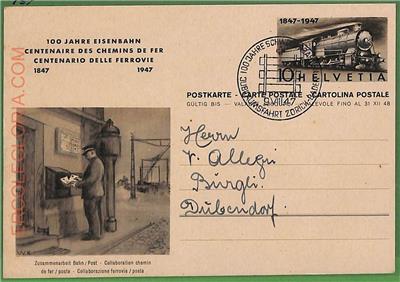 100 JAHRE EISENBAHN
CENTENAIRE DES CHEMINS DE FER
CENTENARIO DELLE FERROVIE
1847 1947
1847-1947
10 HELVETIA
100 JAHRE SCHWEIZ
JUBILÄUMSFAHRT ZÜRICH-BADEN
9.VIII.47
POSTKARTE - CARTE POSTALE - CARTOLINA POSTALE
GÜLTIG BIS - VALABLE FINO AL 31 XII 48
Herrn
V. Allegri
Bürgli
Dübendorf.
Zusammenarbeit Bahn / Post - Collaboration chemin
de fer / poste - Collaborazione ferrovia / posta
ERCOLEGLORIA.COM